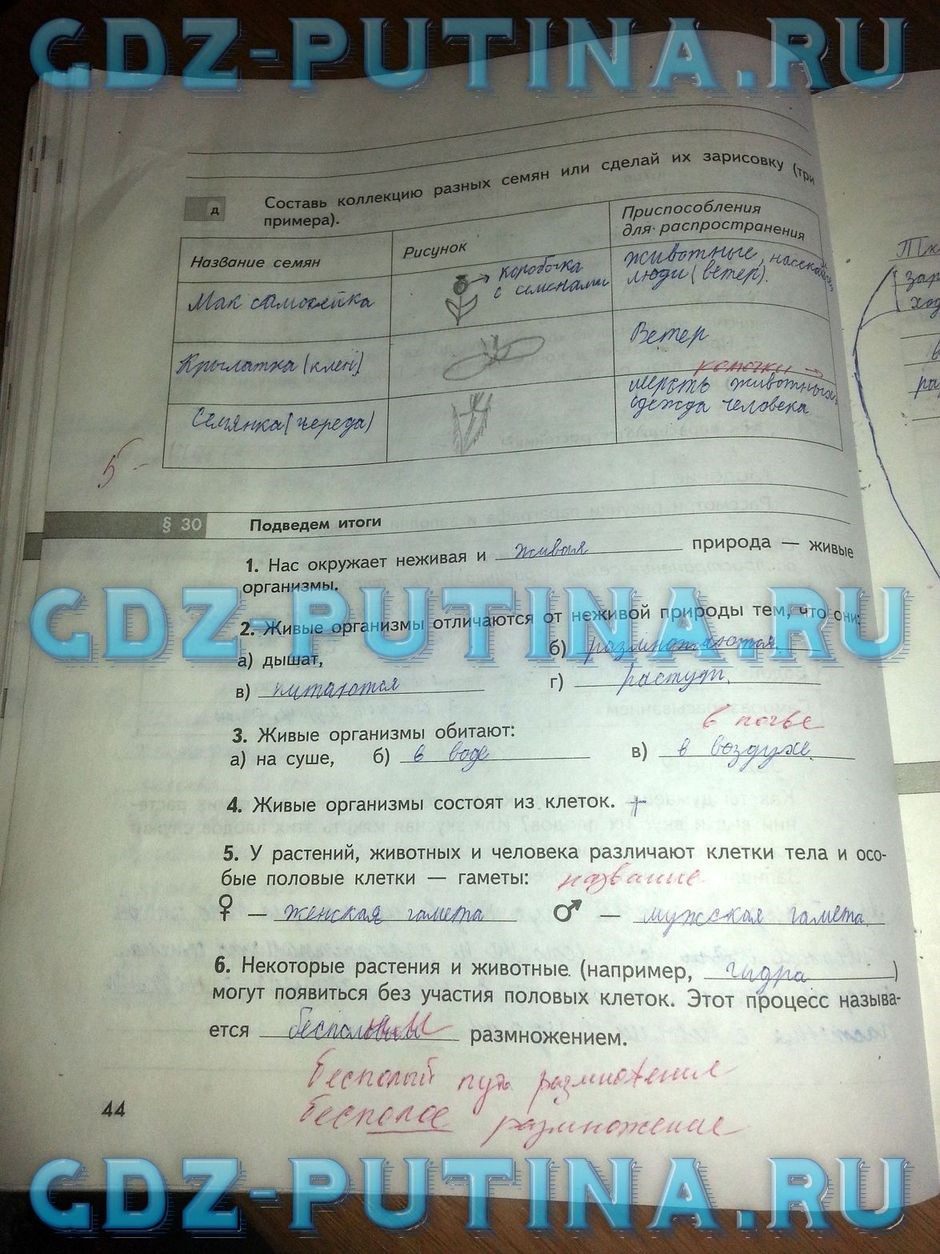 GDZ-PUTINA.RU
д Составь коллекцию разных семян или сделай их зарисовку (три
примера).
Название семян Рисунок Приспособления
для распространения
Мак самосейка коробочка
с семенами животные,
люди (ветер).
Крылатка (клён) Ветер
Семянка (череда) шерсть животных
одежда человека
5-
§ 30 Подведем итоги
1. Нас окружает неживая и живая природа — живые
организмы.
GDZ-PUTINA.RU
2. Живые организмы отличаются от неживой природы тем, что они:
а) дышат, б) размножаются
в) питаются г) растут.
3. Живые организмы обитают: в почве
а) на суше, б) в воде в) в воздухе.
4. Живые организмы состоят из клеток. +
5. У растений, животных и человека различают клетки тела и осо-
бые половые клетки — гаметы: название.
♀ — женская гамета ♂ — мужская гамета.
6. Некоторые растения и животные (например, гидра)
могут появиться без участия половых клеток. Этот процесс называ-
ется бесполым размножением.
Бесполый путь размножения
бесполое размножение
44
GDZ-PUTINA.RU